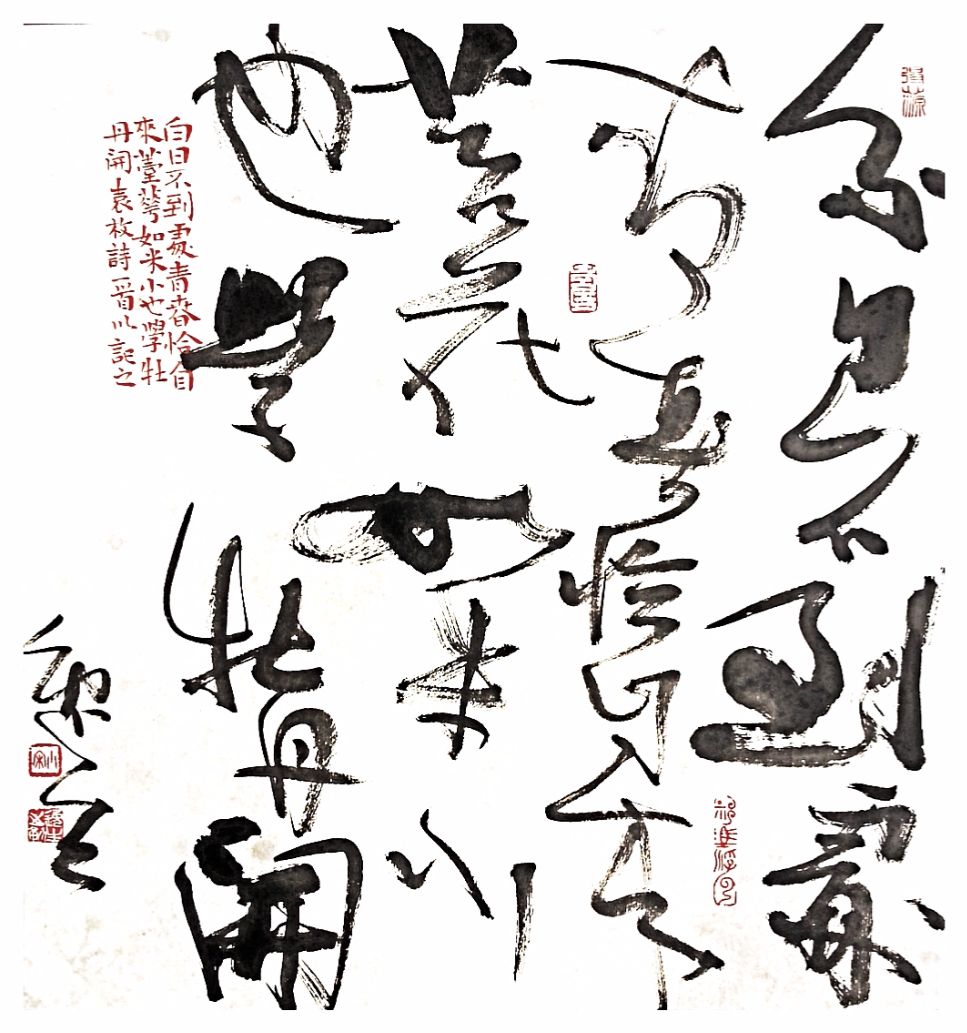 白日不到處
青春恰自來
苔花如米小
也學牡丹開
白日不到處青春恰自
來薹華如米小也學牡
丹開袁枚詩一首以記之